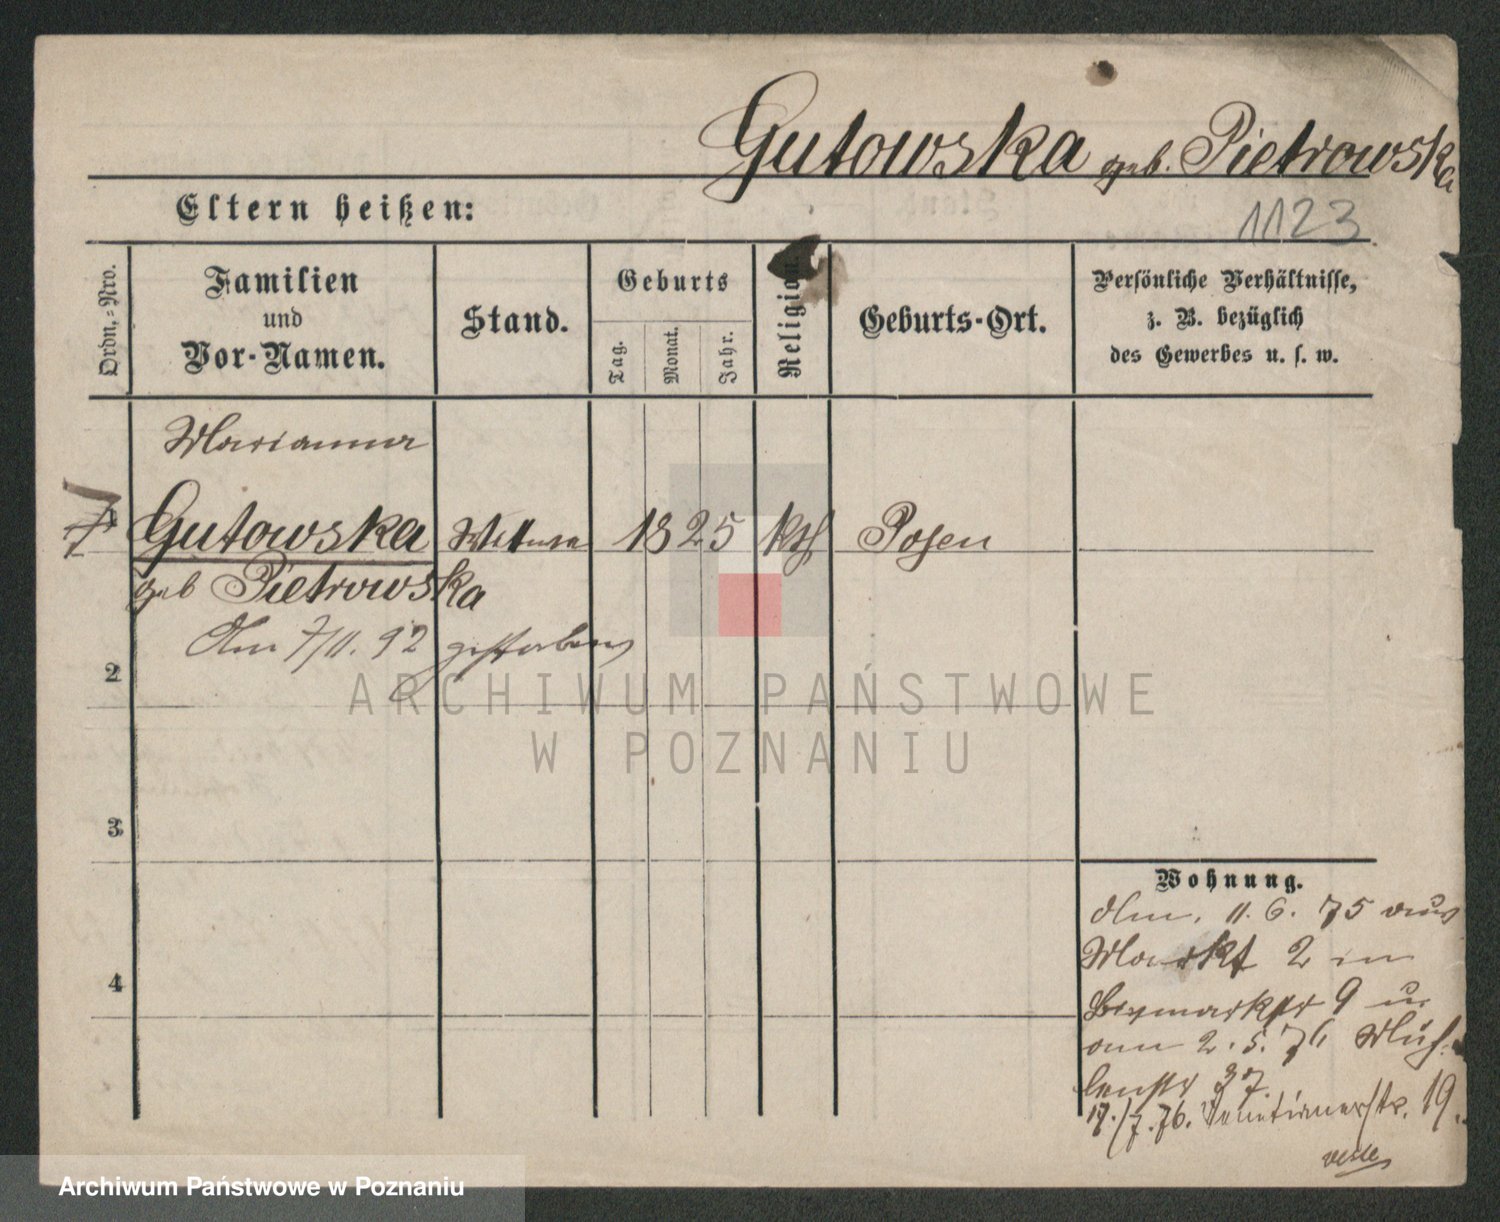 Gutowska geb. Pietrowska
Eltern heißen:
1123.
Ordn.-Nro.
Familien
und
Vor-Namen.
Stand.
Geburts
Tag.
Monat.
Jahr.
Religion.
Geburts-Ort.
Persönliche Verhältnisse,
z. B. bezüglich
des Gewerbes u. s. w.
Marianna
1 Gutowska Wittwe 1825 kth Posen
geb Pietrowska
Am 7/11. 92 gestorben
2
3
4
Wohnung.
Am. 11. 6. 75 aus
Markt 2 in
Bismarkstr 9 u.
am 2. 5. 76 Müh-
lenstr 37
17./7. 76. Venetianerstr. 19.
ARCHIWUM PAŃSTWOWE
W POZNANIU
Archiwum Państwowe w Poznaniu